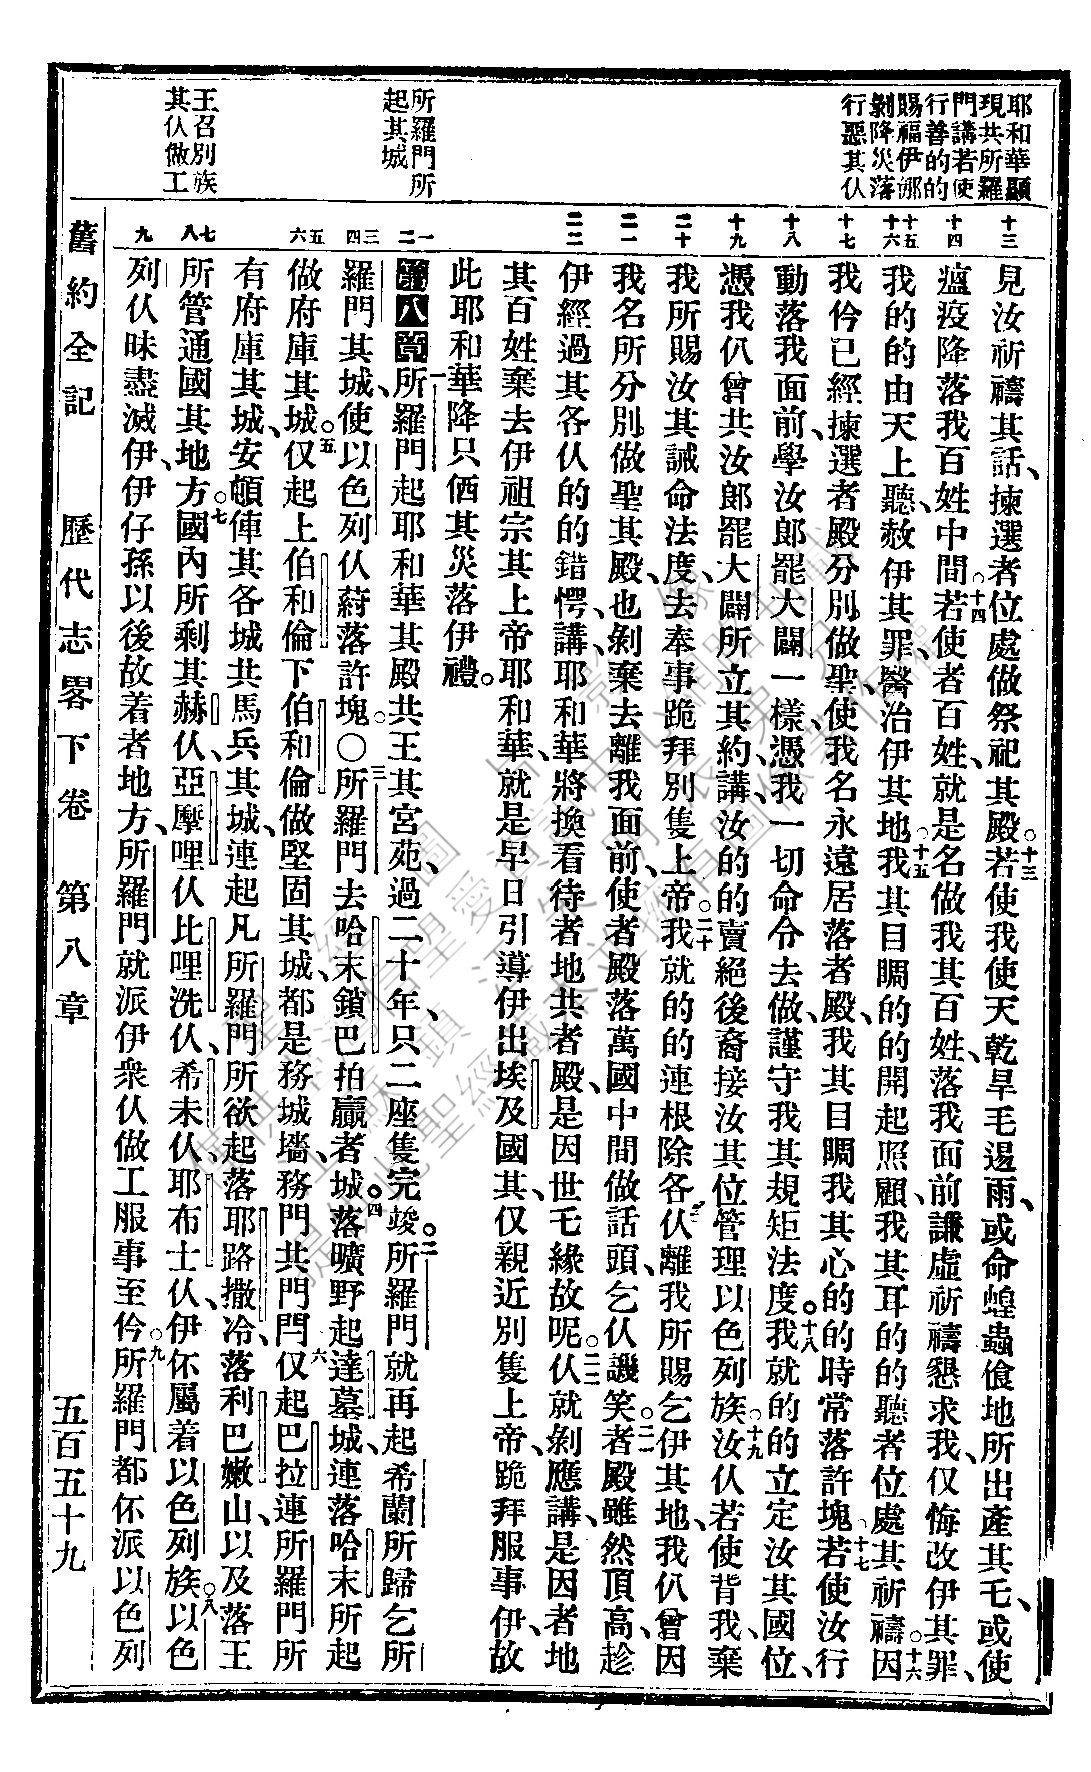 耶和華顯
現共所羅
門講若使
行善的的
賜福伊挪
剝降災落
行惡其仈
所羅門所
起其城
王召別族
其仈做工
十三
十四
十五
十六
十七
十八
十九
二十
二一
二二
一
二
三
四
五
六
七
八
九
見汝祈禱其話、揀選者位處做祭祀其殿。十三若使我使天乾旱毛逿雨、或命蝗蟲飡地所出產其乇、或使
瘟疫降落我百姓中間。十四若使者百姓、就是名做我其百姓、落我面前謙虛祈禱懇求我、仅悔改伊其罪、
我的的由天上聽、赦伊其罪、醫治伊其地。十五我其目睭的的開起照顧、我其耳的的聽者位處其祈禱。十六因
我仱已經揀選者殿分別做聖、使我名永遠居落者殿、我其目睭我其心的的時常落許塊。十七若使汝行
動落我面前、學汝郎罷大闢一樣、憑我一切命令去做、謹守我其規矩法度。十八我就的的立定汝其國位、
憑我仈曾共汝郎罷大闢所立其約講、汝的的賣絕後裔接汝其位管理以色列族。十九汝仈若使背我、棄
我所賜汝其誡命法度、去奉事跪拜別隻上帝。二十我就的的連根除各仈離我所賜乞伊其地、我仈曾因
我名所分別做聖其殿、也剝棄去離我面前、使者殿落萬國中間做話頭、乞仈譏笑。二一者殿雖然頂高、趁
伊經過其各仈的的錯愕、講、耶和華將換看待者地共者殿、是因世乇緣故呢。二二仈就剝應講、是因者地
其百姓棄去伊祖宗其上帝耶和華、就是早日引導伊出埃及國其、仅親近別隻上帝、跪拜服事伊、故
此耶和華降只価其災落伊禮。
第八章一所羅門起耶和華其殿共王其宮苑、過二十年、只二座隻完竣。二所羅門就再起希蘭所歸乞所
羅門其城、使以色列仈蒔落許塊。○三所羅門去哈末鎖巴拍贏者城。四落曠野起達墓城、連落哈末所起
做府庫其城。五仅起上伯和倫下伯和倫做堅固其城、都是務城墻、務門共門閂。六仅起巴拉連所羅門所
有府庫其城、安頓俥其各城共馬兵其城、連起凡所羅門所欲起落耶路撒冷、落利巴嫩山、以及落王
所管通國其地方。七國內所剩其赫仈、亞摩哩仈、比哩洗仈、希未仈、耶布士仈、伊伓屬着以色列族。八以色
列仈昧盡滅伊、伊仔孫以後故着者地方、所羅門就派伊衆仈做工服事至仱。九所羅門都伓派以色列
舊約全記　歷代志畧下卷　第八章　五百五十九